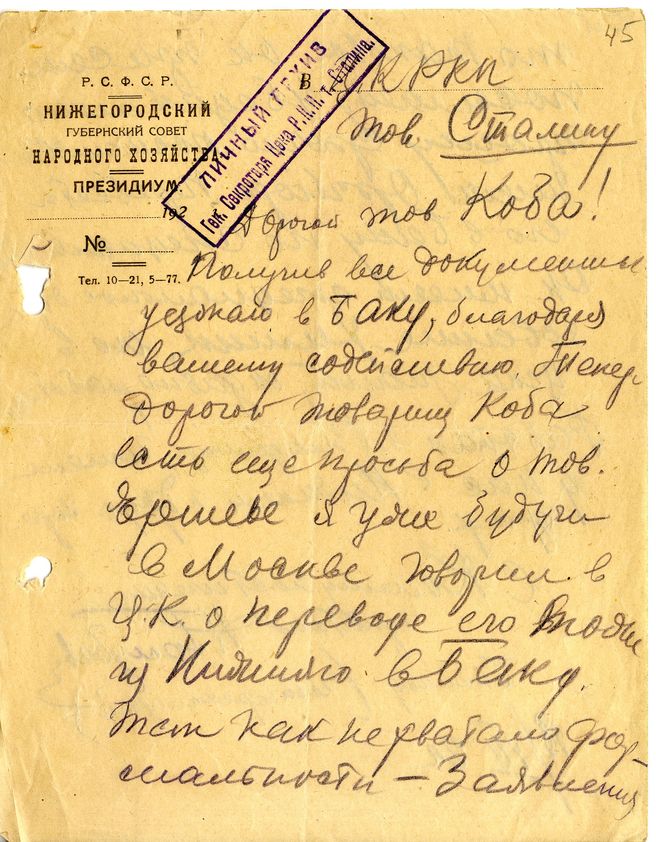 45
Р. С. Ф. С. Р.
НИЖЕГОРОДСКИЙ
ГУБЕРНСКИЙ СОВЕТ
НАРОДНОГО ХОЗЯЙСТВА
ПРЕЗИДИУМ.
192
№
Тел. 10—21, 5—77.
ЛИЧНЫЙ АРХИВ
Ген. Секретаря Цека Р.К.П. т. Сталина.
В ЦК РКП
тов. Сталину
Дорогой тов Коба!
Получив все документы
уезжаю в Баку, благодаря
вашему содействию. Тепер
дорогой товарищ Коба
Есть еще просьба о тов.
Ершове я уже будучи
в Москве говорил в
Ц.К. о переводе его
из Нижняго в Баку.
Там как не хватало фор-
мальности — Заявления